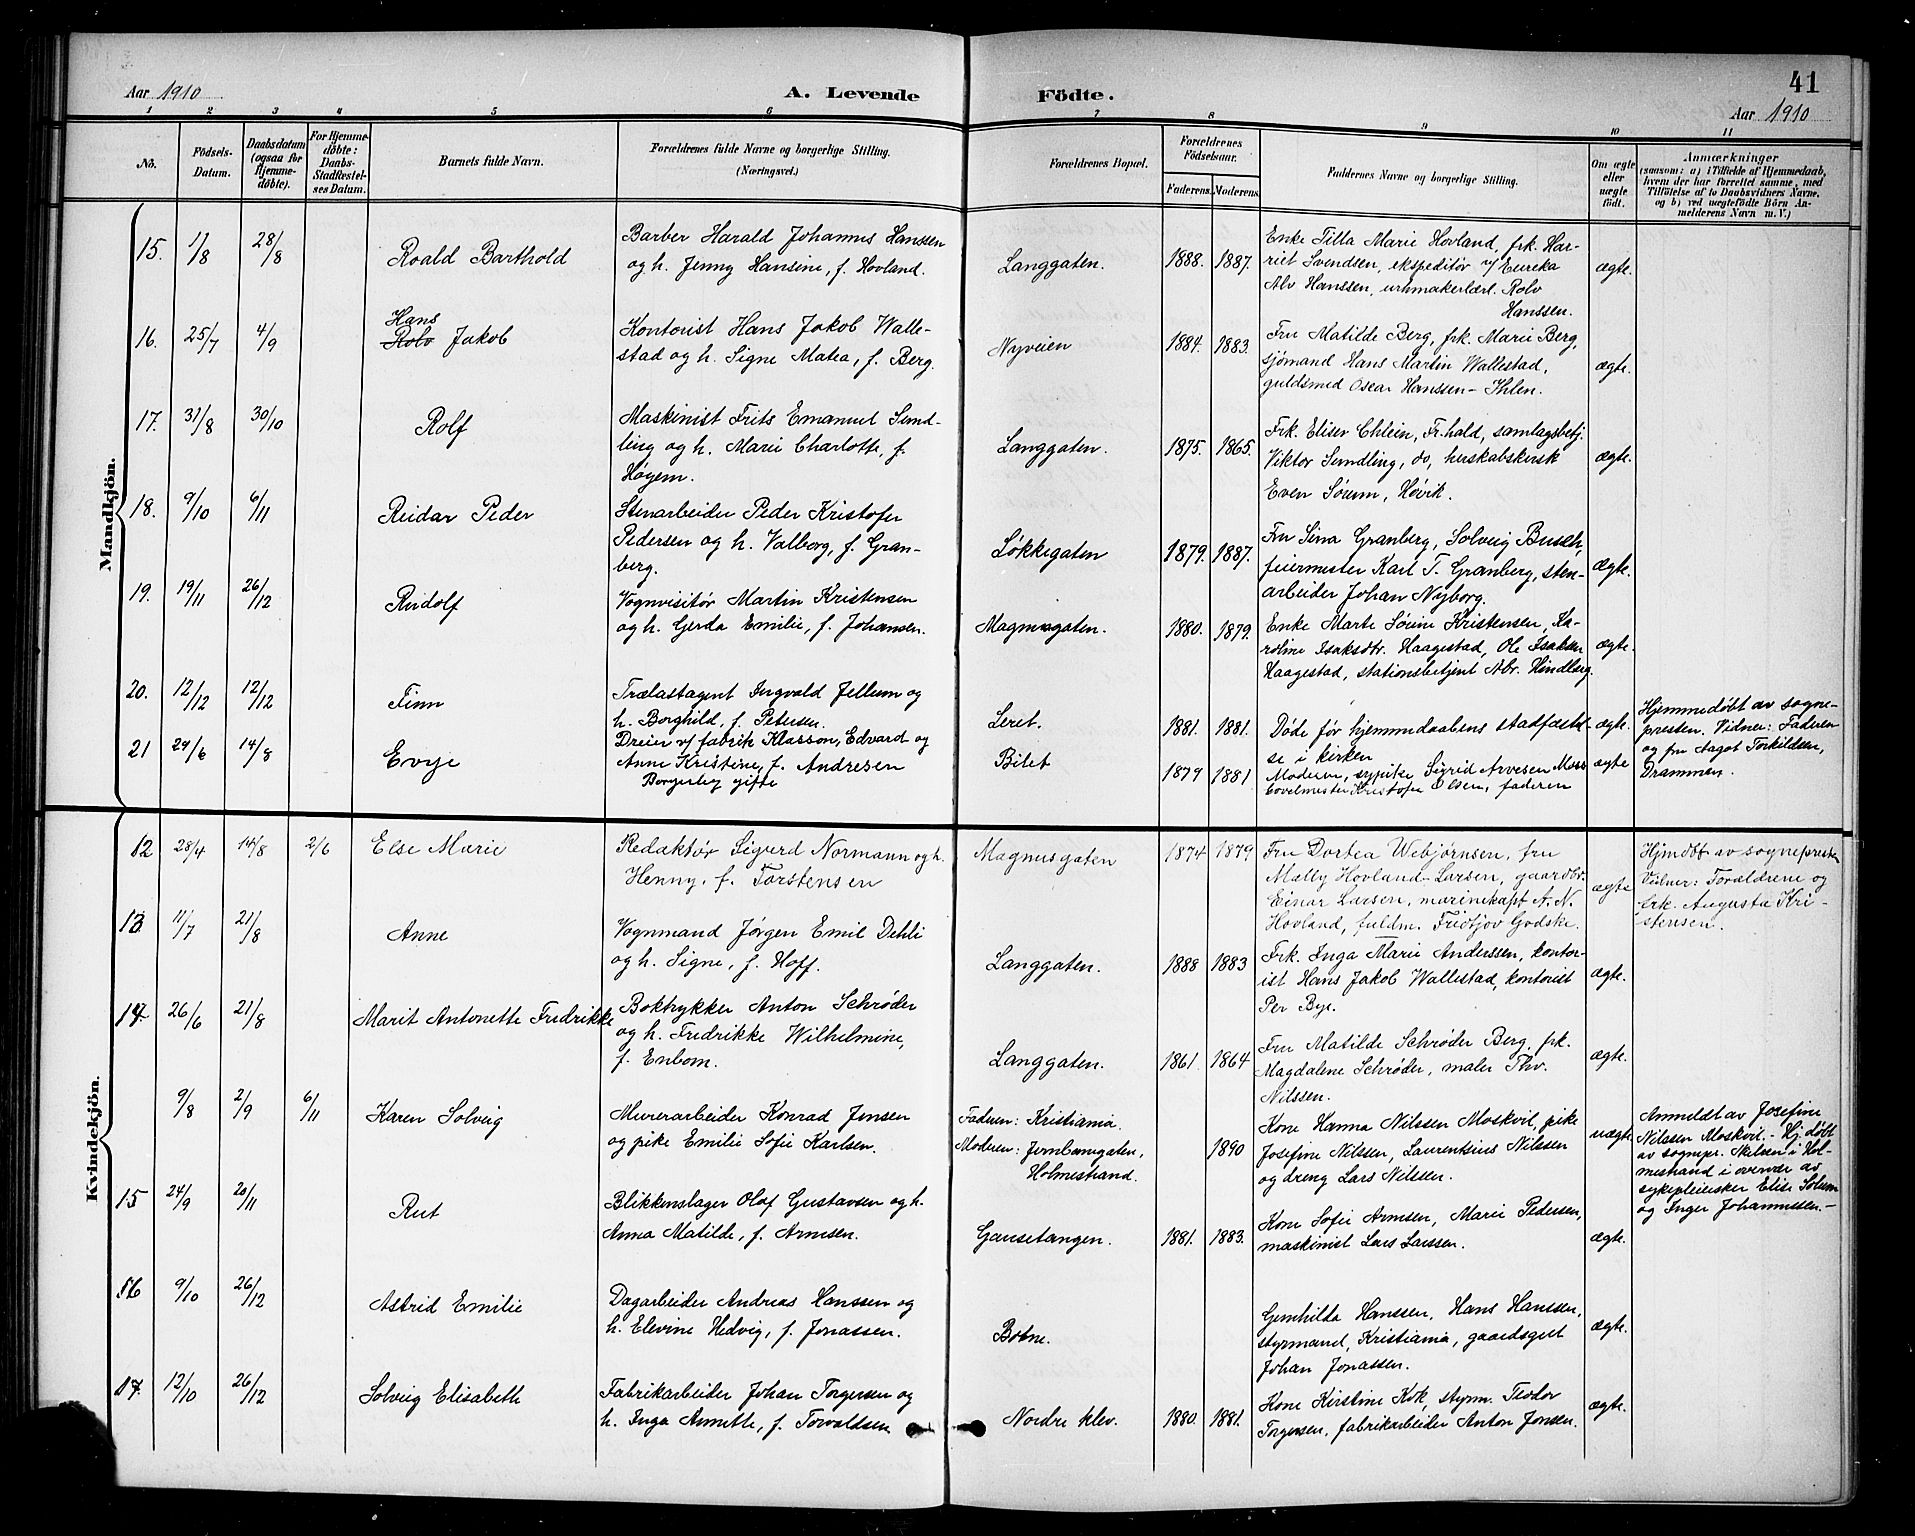 41
Aar 1910
A. Levende Födte.
Aar 1910
1 2 3 4 5 6 7 8 9 10 11
Nò.
Födsels-Datum.
Daabsdatum (ogsaa for Hjemmedöbte).
For Hjemmedöbte: Daabs-Stadfæstelses Datum.
Barnets fulde Navn.
Forældrenes fulde Navne og borgerlige Stilling. (Næringsvei.)
Forældrenes Bopæl.
Forældrenes Födselsaar.
Faderens. Moderens.
Faddernes Navne og borgerlige Stilling.
Om ægte eller uægte födt.
Anmærkninger
(saasom: a) i Tilfælde af Hjemmedaab,
hvem der har forrettet samme, med
Tilföielse af to Daabsvidners Navne.
og b) ved uægtefödte Börn An-
melderens Navn m. V.)
Mandkjön.
15. 1/8 28/8 Roald Barthold
Barber Harald Johannes Hanssen
og h. Jenny Hansine, f. Hovland.
Langgaten. 1888. 1887.
Enke Tilla Marie Hovland, frk. Har-
riet Svendsen, ekspeditør v/ Eureka
Alv Hanssen, urmakerlærl. Rolv
Hanssen.
ægte.
16. 25/7 4/9 Hans
Rolv Jakob
Kontorist Hans Jakob Walle-
stad og h. Signe Matea, f. Berg.
Nyveien 1884. 1883.
Fru Matilde Berg, frk. Marie Berg,
sjømand Hans Martin Wallestad,
guldsmed Oscar Hanssen-Ihlen.
ægte.
17. 31/8 30/10 Rolf
Maskinist Frits Emanuel Sund-
ling og h. Marie Charlotte, f.
Høyem.
Langgaten. 1875. 1865.
Frk. Eliser Chlein, Fr.hald, samlagsbetj.
Viktor Sundling, do, herskabskusk
Even Sørum, Høvik.
ægte.
18. 9/10 6/11 Reidar Peder
Stenarbeider Peder Kristofer
Pedersen og h. Valborg, f. Gran-
berg.
Løkkegaten 1879. 1887.
Fru Sina Granberg, Solveig Busch,
feiermester Karl T. Granberg, sten-
arbeider Johan Nyborg.
ægte.
19. 19/11 26/12 Rudolf
Vognvisitør Martin Kristensen
og h. Gerda Emilie, f. Johansen.
Magnusgaten. 1880. 1879.
Enke Marte Sørine Kristensen, Ka-
roline Isaksdtr. Haagestad, Ole Isaksen
Haagestad, stationsbetjent Abr. Hindberg.
ægte.
20. 12/12 12/12 Finn
Trælastagent Ingvald Jellum og
h. Borghild, f. Petersen.
Leret. 1881. 1881.
Døde før hjemmedaabens stadfæstel-
se i kirken
ægte.
Hjemmedøbt av sogne-
presten. Vidner: Faderen
og fru Aagot Torkildsen,
Drammen.
21 29/6 14/8 Evje
Dreier v/ fabrik Klasson, Edvard og
Anne Kristine, f. Andresen
Borgerlig gifte
Bilet 1879 1881
Moderen, sypike Sigrid Arvesen Moss
Kristofer Olsen, faderen
ægte
Kvindekjön.
12 28/4 14/8 2/6 Else Marie
Redaktør Sigurd Normann og h.
Henny, f. Torstensen
Magnusgaten 1874 1879
Fru Dortea Webjørnsen, fru
Mælly Hovland-Larsen, gaardbr.
Einar Larsen, marinekapt A. N.
Hovland, fuldm. Fridtjov Godske.
ægte
Hjmdøbt av sognepresten
Vidner: Forældrene og
frk. Augusta Kri-
stensen.
13 11/7 21/8 Anne
Vognmand Jørgen Emil Dehli
og h. Signe, f. Hoff.
Langgaten. 1888 1883
Frk. Inga Marie Anderssen, kontor-
ist Hans Jakob Wallestad, kontorist
Per Bye.
ægte.
14. 26/6 21/8 Marit Antonette Fredrikke
Boktrykker Anton Schrøder
og h. Fredrikke Wilhelmine,
f. Enbom.
Langgaten. 1861 1864
Fru Matilde Schrøder Berg, frk.
Magdalene Schrøder, maler Thv.
Nilssen.
ægte.
9/8 2/9 6/11 Karen Solveig
Murerarbeider Konrad Jensen
og pike Emilie Sofie Karlsen.
Faderen: Kristiania.
Moderen: Jernbanegaten,
Holmestrand.
1890
Kone Hanna Nilssen Moskvil, pike
Josefine Nilssen, Laurentsius Nilssen
og dreng Lars Nilssen.
uægte
Anmeldt av Josefine
Nilssen Moskvil.- Hj.døbt
av sognepr. Nilsen i Hol-
mestrand i overvær av
sykepleiersker Elise Solum
og Inger Johannessen.-
15 24/9 20/11 Rut
Blikkenslager Olaf Gustavsen og h.
Anna Matilde, f. Arnesen.
Gausetangen. 1881. 1883.
Kone Sofie Arnesen, Marie Pedersen,
maskinist Lars Larssen.
ægte.
16 9/10 26/12 Astrid Emilie
Dagarbeider Andreas Hanssen og
h. Elevine Hedvig, f. Jonassen.
Botne.
Gunhilda Hanssen, Hans Hanssen,
styrmand, Kristiania, gaardsgut
Johan Jonassen.
ægte.
17. 12/10 26/12 Solveig Elisabeth
Fabrikarbeider Johan Torgersen og
h. Inga Annette, f. Torvaldsen
Nordre klev. 1880. 1881.
Kone Kirstine Kok, styrm. Teodor
Torgersen, fabrikarbeider Anton Jonsen.
ægte.